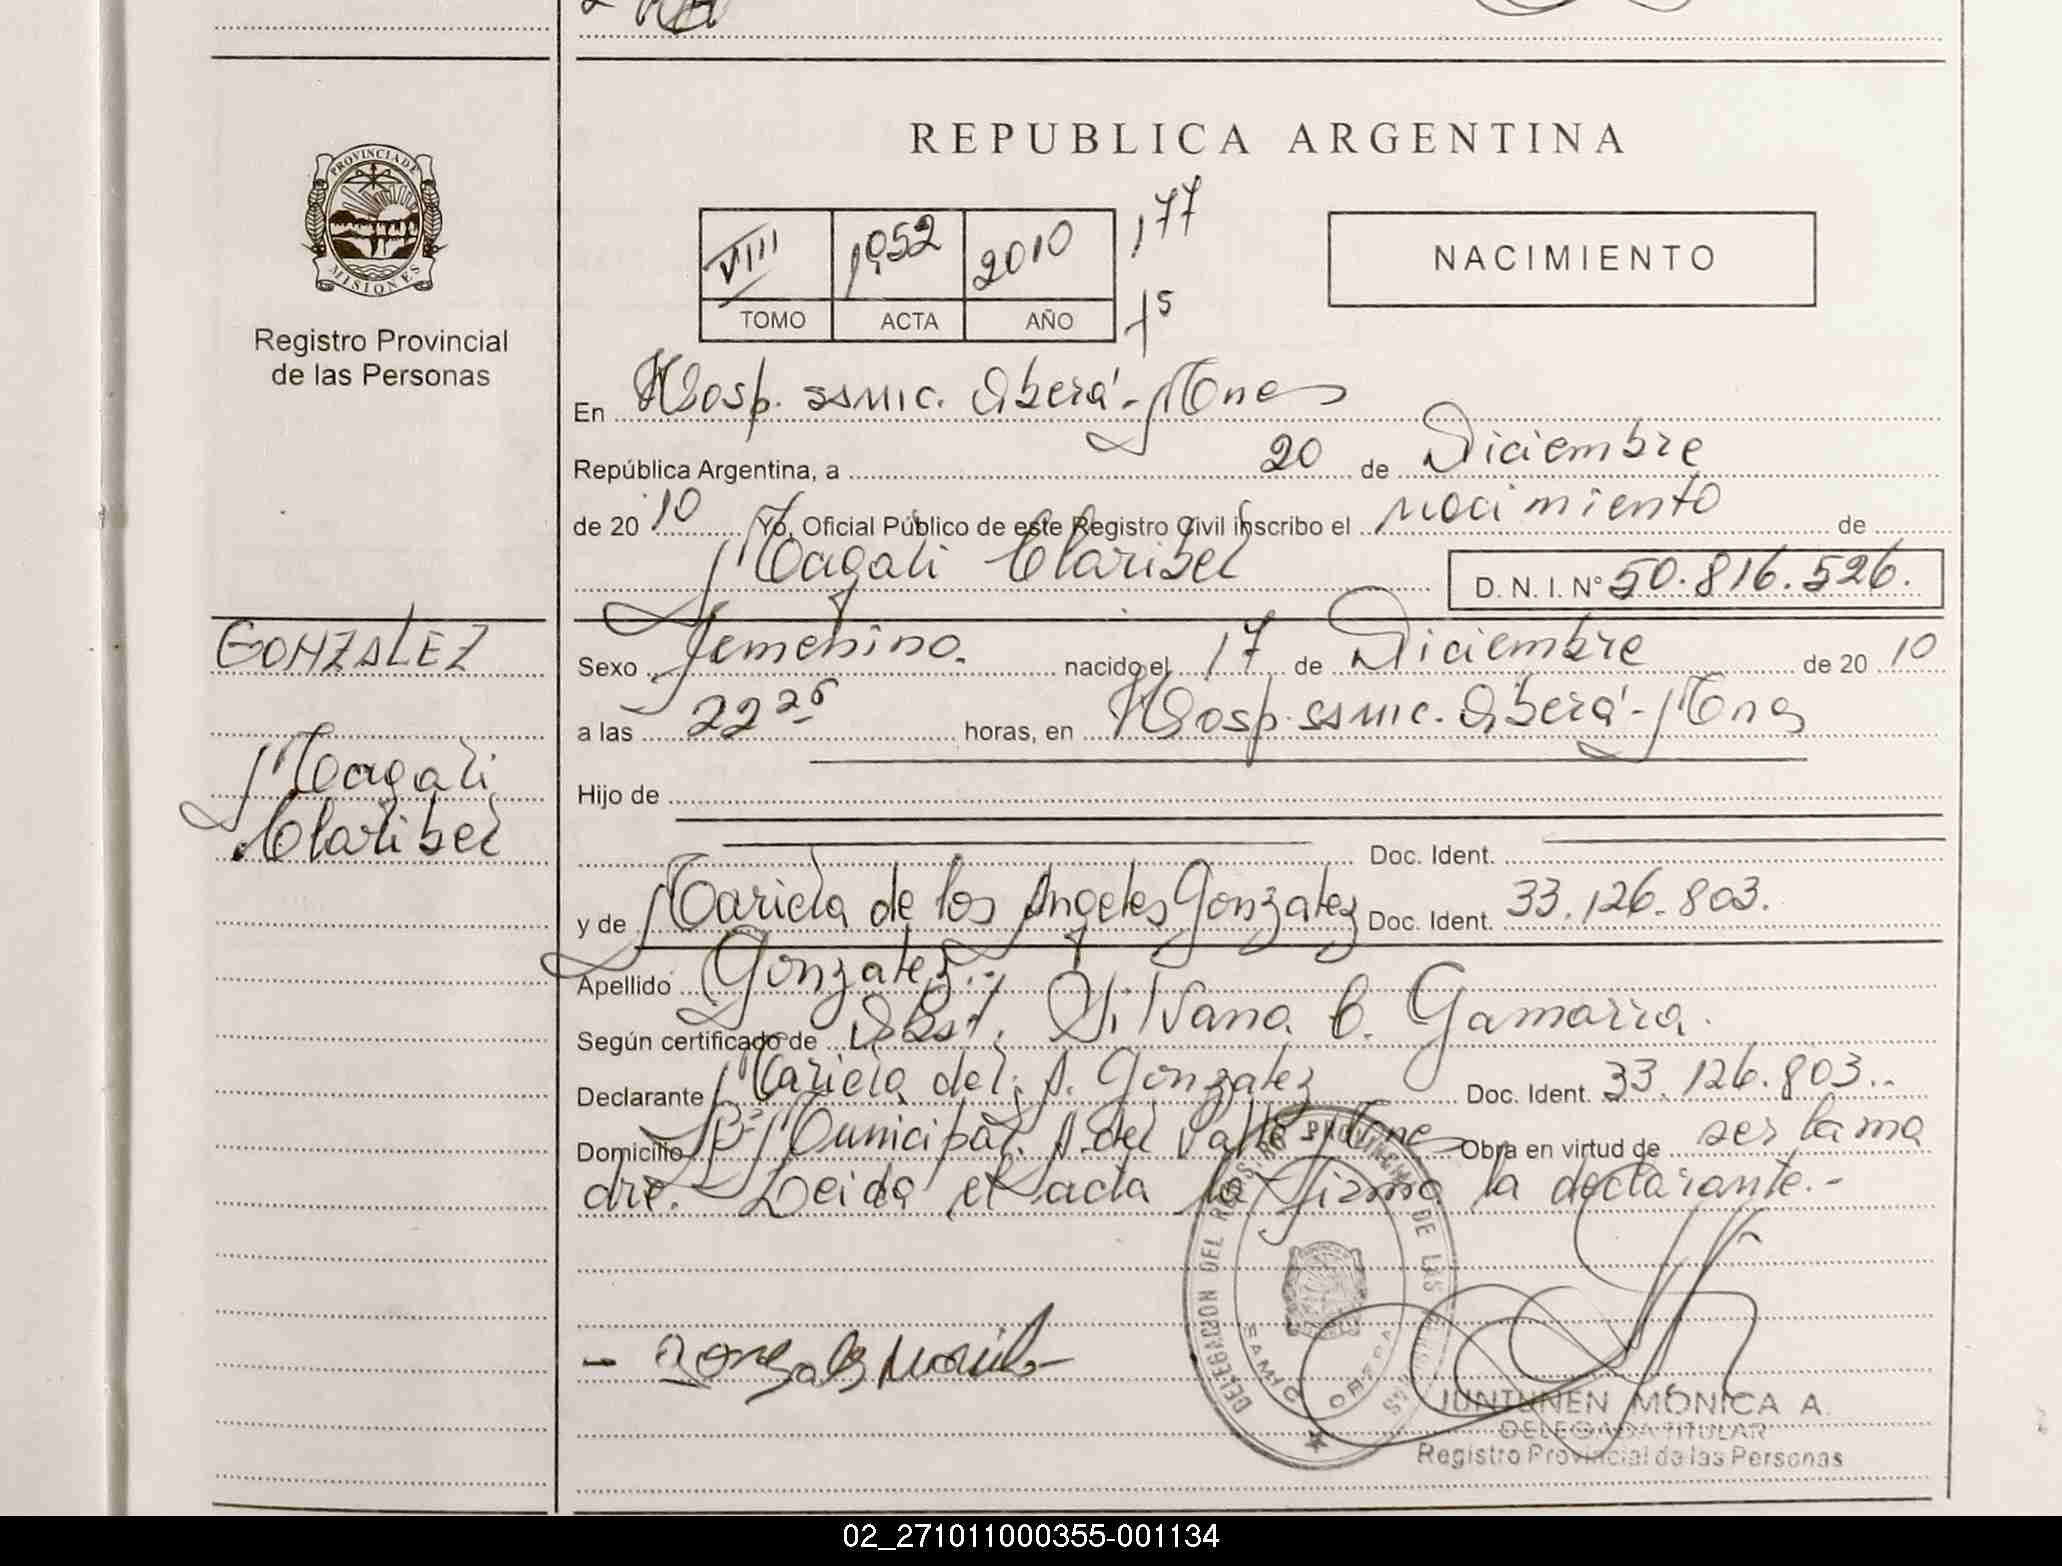 REPUBLICA ARGENTINA
PROVINCIA DE
MISIONES
Registro Provincial
de las Personas
VIII 1952 2010 177
TOMO ACTA AÑO
NACIMIENTO
En Hosp. ssmic. Oberá - Mnes
República Argentina, a 20 de Diciembre
de 20 10 Yo, Oficial Público de este Registro Civil inscribo el nacimiento de
Magali Claribel D. N. I. N° 50.816.526.
GONZALEZ
Magali
Claribel
Sexo femenino. nacido el 17 de Diciembre de 20 10
a las 22 25 horas, en Hosp. ssmic. Oberá - Mnes
Hijo de
Doc. Ident.
y de Mariela de los Angeles Gonzalez Doc. Ident. 33.126.803.
Apellido Gonzalez.-
Según certificado de Obst. Silvana C. Gamarra.
Declarante Mariela del. A. Gonzalez Doc. Ident. 33.126.803..
Domicilio B° Municipal A. del Valle Mnes Obra en virtud de ser la ma
dre. Leida el acta la firma la declarante.-
DELEGACION DEL REGISTRO PROVINCIAL DE LAS PERSONAS
- Gonzalez Mariela -
JUNTUNEN MONICA A.
DELEGADA TITULAR
Registro Provincial de las Personas
02_271011000355-001134